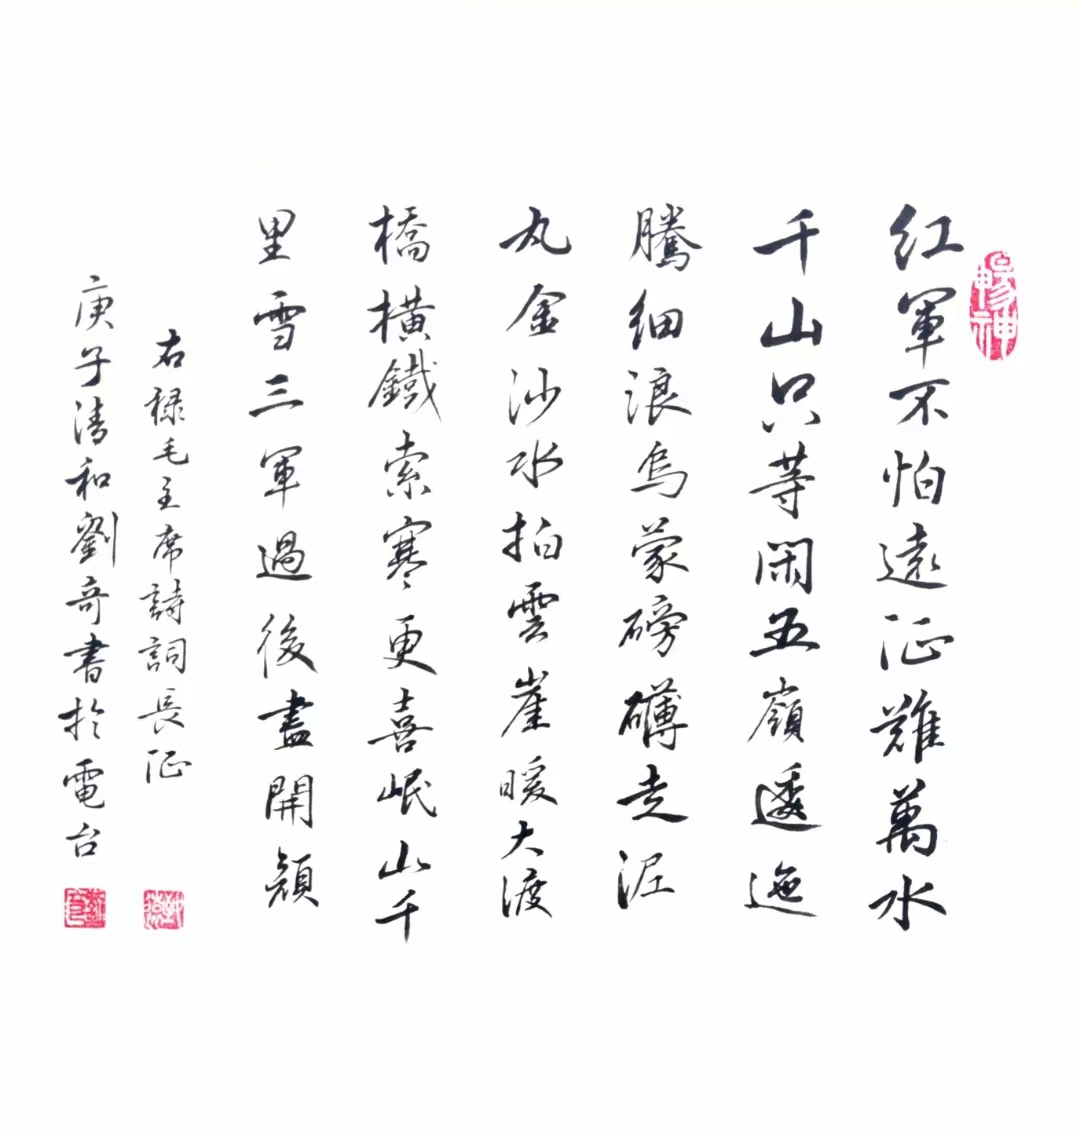 暢神
红軍不怕遠征難萬水
千山只等閑五嶺逶迤
騰細浪烏蒙磅礴走泥
丸金沙水拍雲崖暖大渡
橋橫鐵索寒更喜岷山千
里雪三軍過後盡開顏
右禄毛主席詩詞長征
庚子清和劉奇書於電台